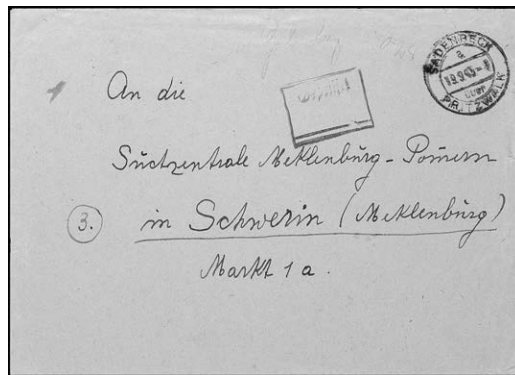 SADENBECK
a
19.9.45-8
über
PRITZWALK
An die
Suchzentrale Meklenburg-Pomern
3. in Schwerin (Meklenburg)
Markt 1 a.